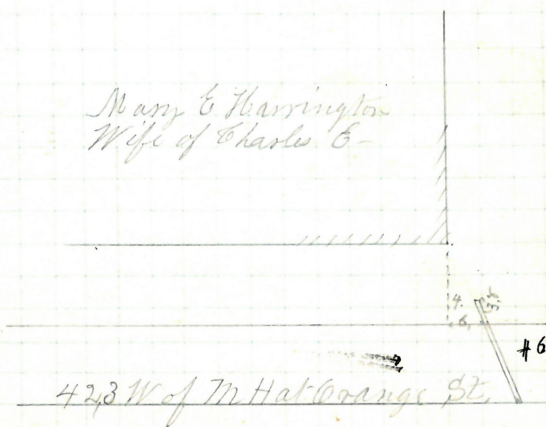 Mary E Harrington
Wife of Charles E-
4.
3.5
6.
#6
423 W of M H at Orange St.